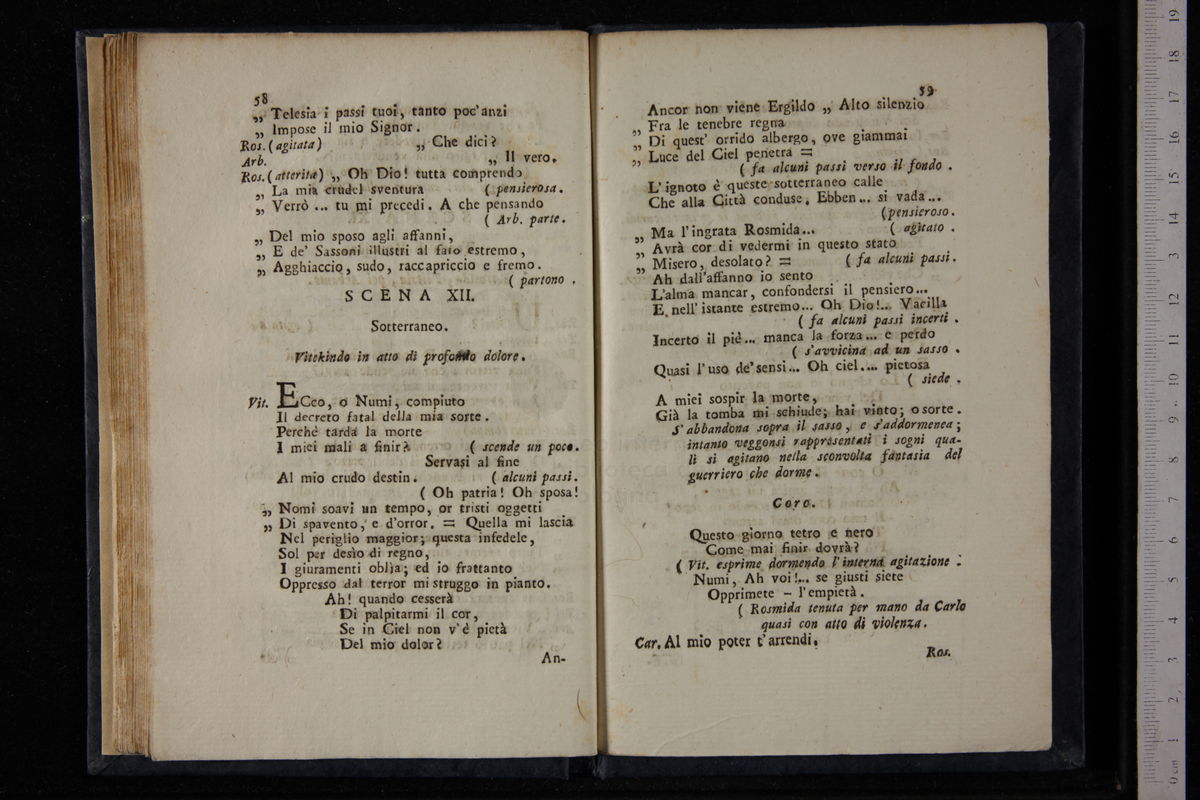 58
„ Telesia i passi tuoi, tanto poc'anzi
„ Impose il mio Signor.
Ros. (agitata) „ Che dici?
Arb. „ Il vero.
Ros. (atterita) „ Oh Dio! tutta comprendo
„ La mia crudel sventura ( pensierosa.
„ Verrò ... tu mi precedi. A che pensando
( Arb. parte.
„ Del mio sposo agli affanni,
„ E de' Sassoni illustri al fato estremo,
„ Agghiaccio, sudo, raccapriccio e fremo.
( partono .
SCENA XII.
Sotterraneo.
Vitekindo in atto di profondo dolore.
Vit. ECco, o Numi, compiuto
Il decreto fatal della mia sorte.
Perchè tarda la morte
I miei mali a finir? ( scende un poco.
Servasi al fine
Al mio crudo destin. ( alcuni passi.
( Oh patria! Oh sposa!
„ Nomi soavi un tempo, or tristi oggetti
„ Di spavento, e d'orror. = Quella mi lascia
Nel periglio maggior; questa infedele,
Sol per desìo di regno,
I giuramenti oblìa; ed io frattanto
Oppresso dal terror mi struggo in pianto.
Ah! quando cesserà
Di palpitarmi il cor,
Se in Ciel non v'è pietà
Del mio dolor?
An-
59
Ancor non viene Ergildo „ Alto silenzio
„ Fra le tenebre regna
„ Di quest' orrido albergo, ove giammai
„ Luce del Ciel penetra =
( fa alcuni passi verso il fondo .
L'ignoto è queste sotterraneo calle
Che alla Città conduse. Ebben... si vada...
(pensieroso.
„ Ma l'ingrata Rosmida... ( agitato .
„ Avrà cor di vedermi in questo stato
„ Misero, desolato? = ( fa alcuni passi.
Ah dall'affanno io sento
L'alma mancar, confondersi il pensiero...
E nell' istante estremo... Oh Dio!.. Vacilla
( fa alcuni passi incerti .
Incerto il piè... manca la forza... e perdo
( s'avvicina ad un sasso .
Quasi l'uso de' sensi... Oh ciel.... pietosa
( siede .
A miei sospir la morte,
Già la tomba mi schiude; hai vinto; o sorte.
S' abbandona sopra il sasso, e s'addormenea;
intanto veggonsi rappresentati i sogni qua-
li si agitano nella sconvolta fantasia del
guerriero che dorme.
Coro.
Questo giorno tetro e nero
Come mai finir dovrà?
( Vit. esprime dormendo l'interna agitazione .
Numi, Ah voi!... se giusti siete
Opprimete - l'empietà.
( Rosmida tenuta per mano da Carlo
quasi con atto di violenza.
Car. Al mio poter t'arrendi.
Ros.